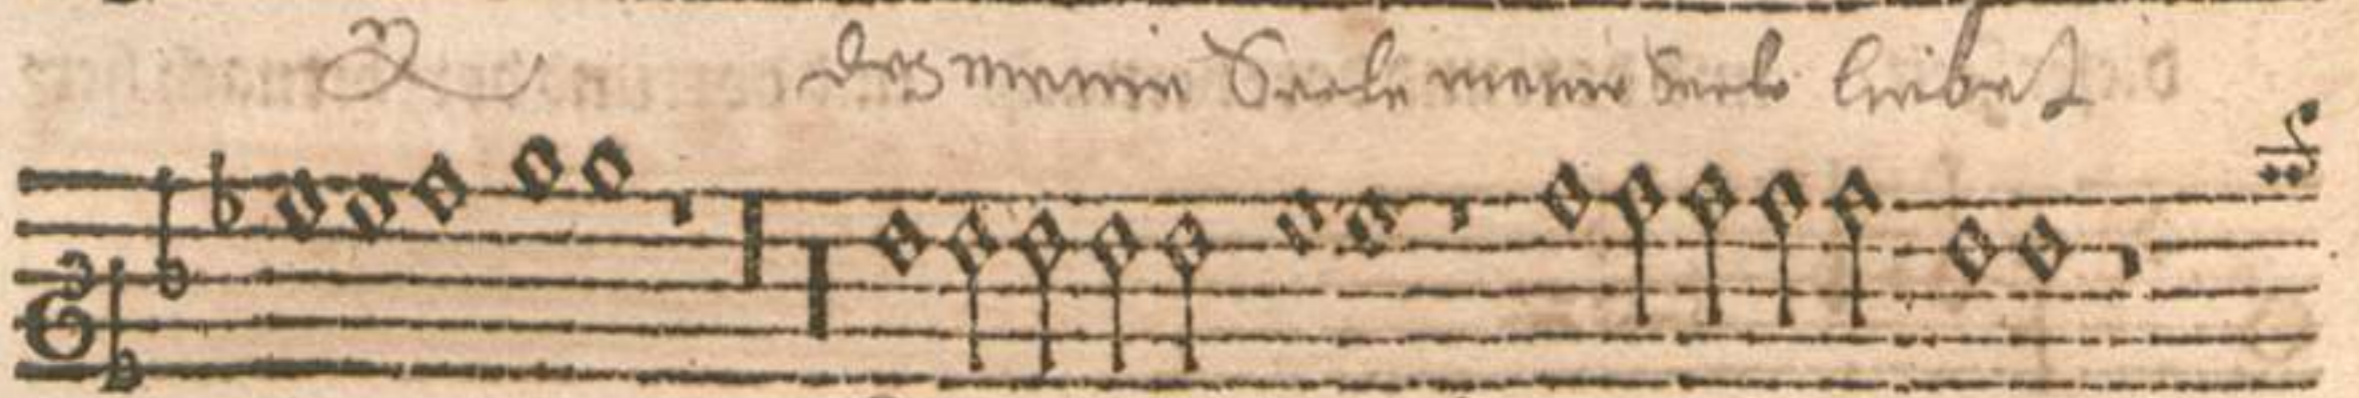 des meine Seele meine Seele liebet